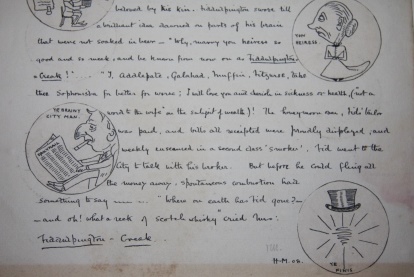 beloved by his kin. Fiddlripington swore till
a brilliant idea dawned on parts of his brain
that were not soaked in beer — "Why, marry you heiress so
good and so meek, and be known from now on as a
Creak!" — "I, Addlepate, Galahad, Muffin, Filgrave, take
thee Sophonisba for better for worse; I will love you and cherish in sickness or health, (not a
word to the wife on the subject of wealth)! The honeymoon over, his tailor
was paid, and bills all receipted were proudly displayed, and
weekly ensconced in a second class 'smoker', went to the
City to talk with his broker. But before he could fling all
the money away, spontaneous combustion had
something to say ——— "Where on earth has gone? —
— and oh! what a reek of Scotch whisky" cried Mrs:
Creak.
YON HEIRESS
YE BRAINY CITY MAN.
YE FINIS
H.M. 08.